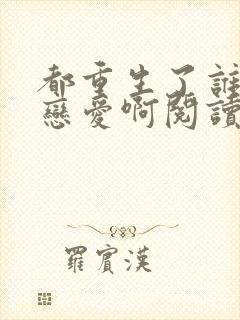 都重生了誰
戀愛啊閱讀
羅賓漢